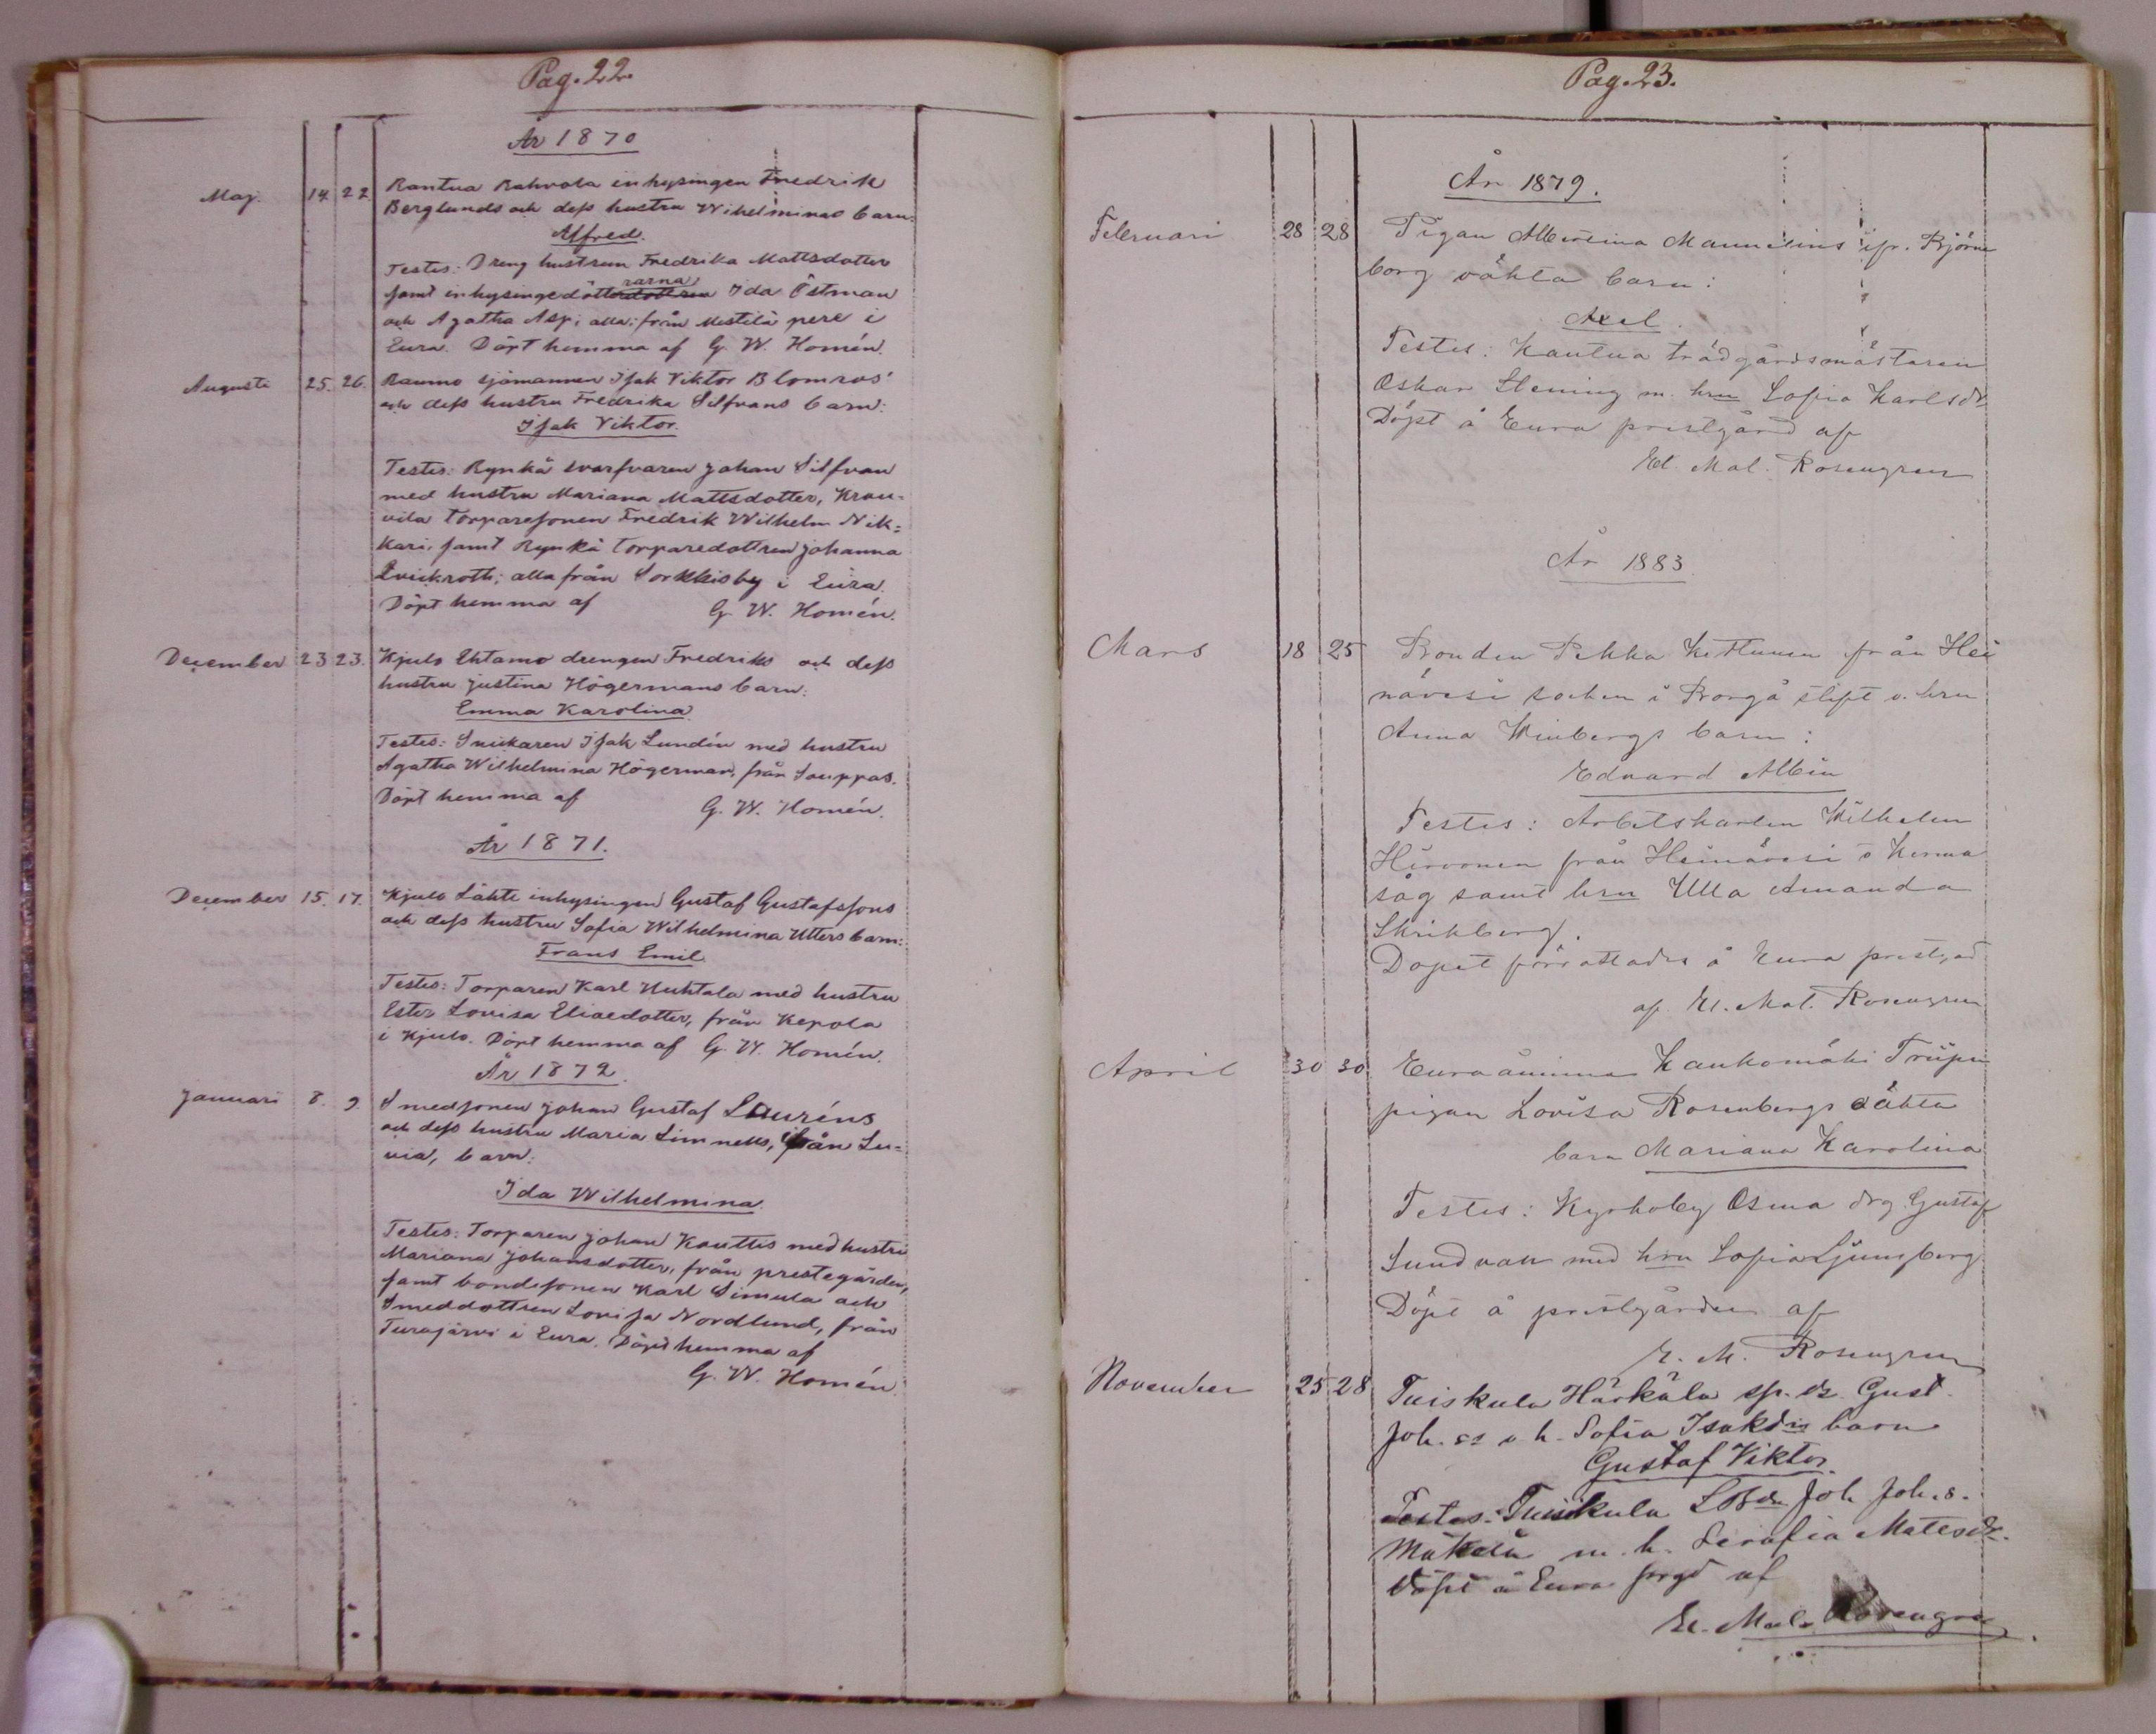 Pag. 22.
År 1870
Maj. 14. 22. Kantua Rahvola inhysingen Fredrik
Berglunds och dess hustru Wihelminas barn:
Alfred.
Testes: Dreng hustrun Fredrika Mattsdotter
samt inhysingedöttrarna Ida Östman
och Agatha Asp; alla från Mestilä pere i
Eura. Döpt hemma af G. W. Homén.
Augusti 25. 26. Raumo sjömannen Isak Viktor Blomros'
och dess hustru Fredrika Silfvans barn:
Isak Viktor.
Testes: Rynkä svarfvaren Johan Silfvan
med hustru Mariana Mattsdotter, Krou=
vila torparesonen Fredrik Wilhelm Nik=
kari, samt Rynkä torparedottren Johanna
Qvickroth; alla från Sorkkisby i Eura.
Döpt hemma af G. W. Homén.
December 23 23. Kjulo Ehtamo drengen Fredriks och dess
hustru Justina Högermans barn:
Emma Karolina
Testes: Snickaren Isak Lundén med hustru
Agatha Wilhelmina Högerman, från Lauppas.
Döpt hemma af G. W. Homén.
År 1871.
December 15. 17. Kjulo Lähte inhysingen Gustaf Gustafssons
och dess hustru Sofia Wilhelmina Utters barn:
Frans Emil
Testes: Torparen Karl Huhtala med hustru
Ester Lovisa Eliaedotter, från Kepola
i Kjulo. Döpt hemma af G. W. Homén.
År 1872.
Januari 8. 9. Smedsonen Johan Gustaf Lauréns
och dess hustru Maria Limnells, från Lu=
via, barn:
Ida Wilhelmina.
Testes: Torparen Johan Kauttis med hustru
Mariana Johansdotter, från prestegården,
samt bondesonen Karl Simula och
Smeddottren Lovisa Nordlund, från
Turajärvi i Eura. Döpt hemma af
G. W. Homén.
Pag. 23.
År 1879.
Februari 28 28 Pigan Albertina Mannelins fr. Björne
borg oähta barn:
Axel.
Testes: Kautua trädgårdsmästaren
Oskar Fleming m. hru Sofia Karlsdr
Döpt å Eura prestgård af
El. Mal. Rosengren
År 1883
Mars 18 25 Bonden Pekka Kettunen från Hei
nävesi socken i Borgå stift o. hru
Anna Winbergs barn:
Edvard Albin
Testes: Arbetskarlen Wilhelm
Hirvonen från Heinävesi o Kerma
såg samt hru Ulla Amanda
Skrikberg.
Dopet förrättades å Eura prestgd
af El. Mal. Rosengren
April 30 30 Euraåminne Kaukomäki Triipu
pigan Lovisa Rosenbergs oähta
barn Mariana Karolina
Testes: Kyrkoby Osma drg Gustaf
Sundvall med hru Sofia Ljungberg
Döpt å prestgården af
E. M. Rosengren
November 25 28 Tuiskula Härkälä sp. dr Gust.
Joh. ss o h. Sofia Isaksdrs barn
Gustaf Viktor.
Testes: Tuiskula Joh Joh. s.
Mäkelä m. h. Serafia Matesdr.
Döpt å Eura prgd af
El. Mal. Rosengren